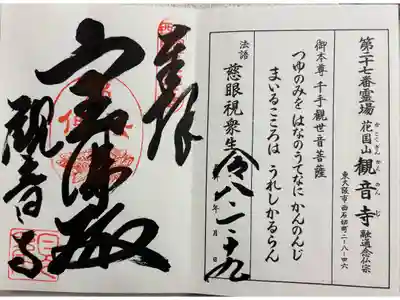 第二十七番霊場
花国山
かこくざん
観音寺
かんのんじ
融通念仏宗
東大阪市西石切町二-八-四六
御本尊 千手觀世音菩薩
つゆのみを はなのうてなに かんのんじ
まいるこころは うれしかるらん
法語 慈眼視衆生
令八 二 十九
年 月 日
奉拝
観音寺